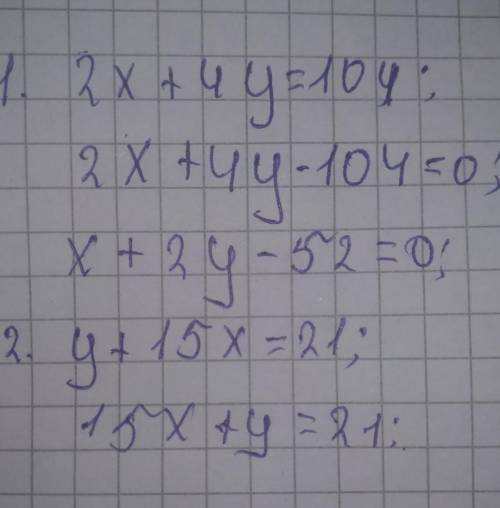 1. 2x + 4y = 104;
2x + 4y - 104 = 0;
x + 2y - 52 = 0;
2. y + 15x = 21;
15x + y = 21;